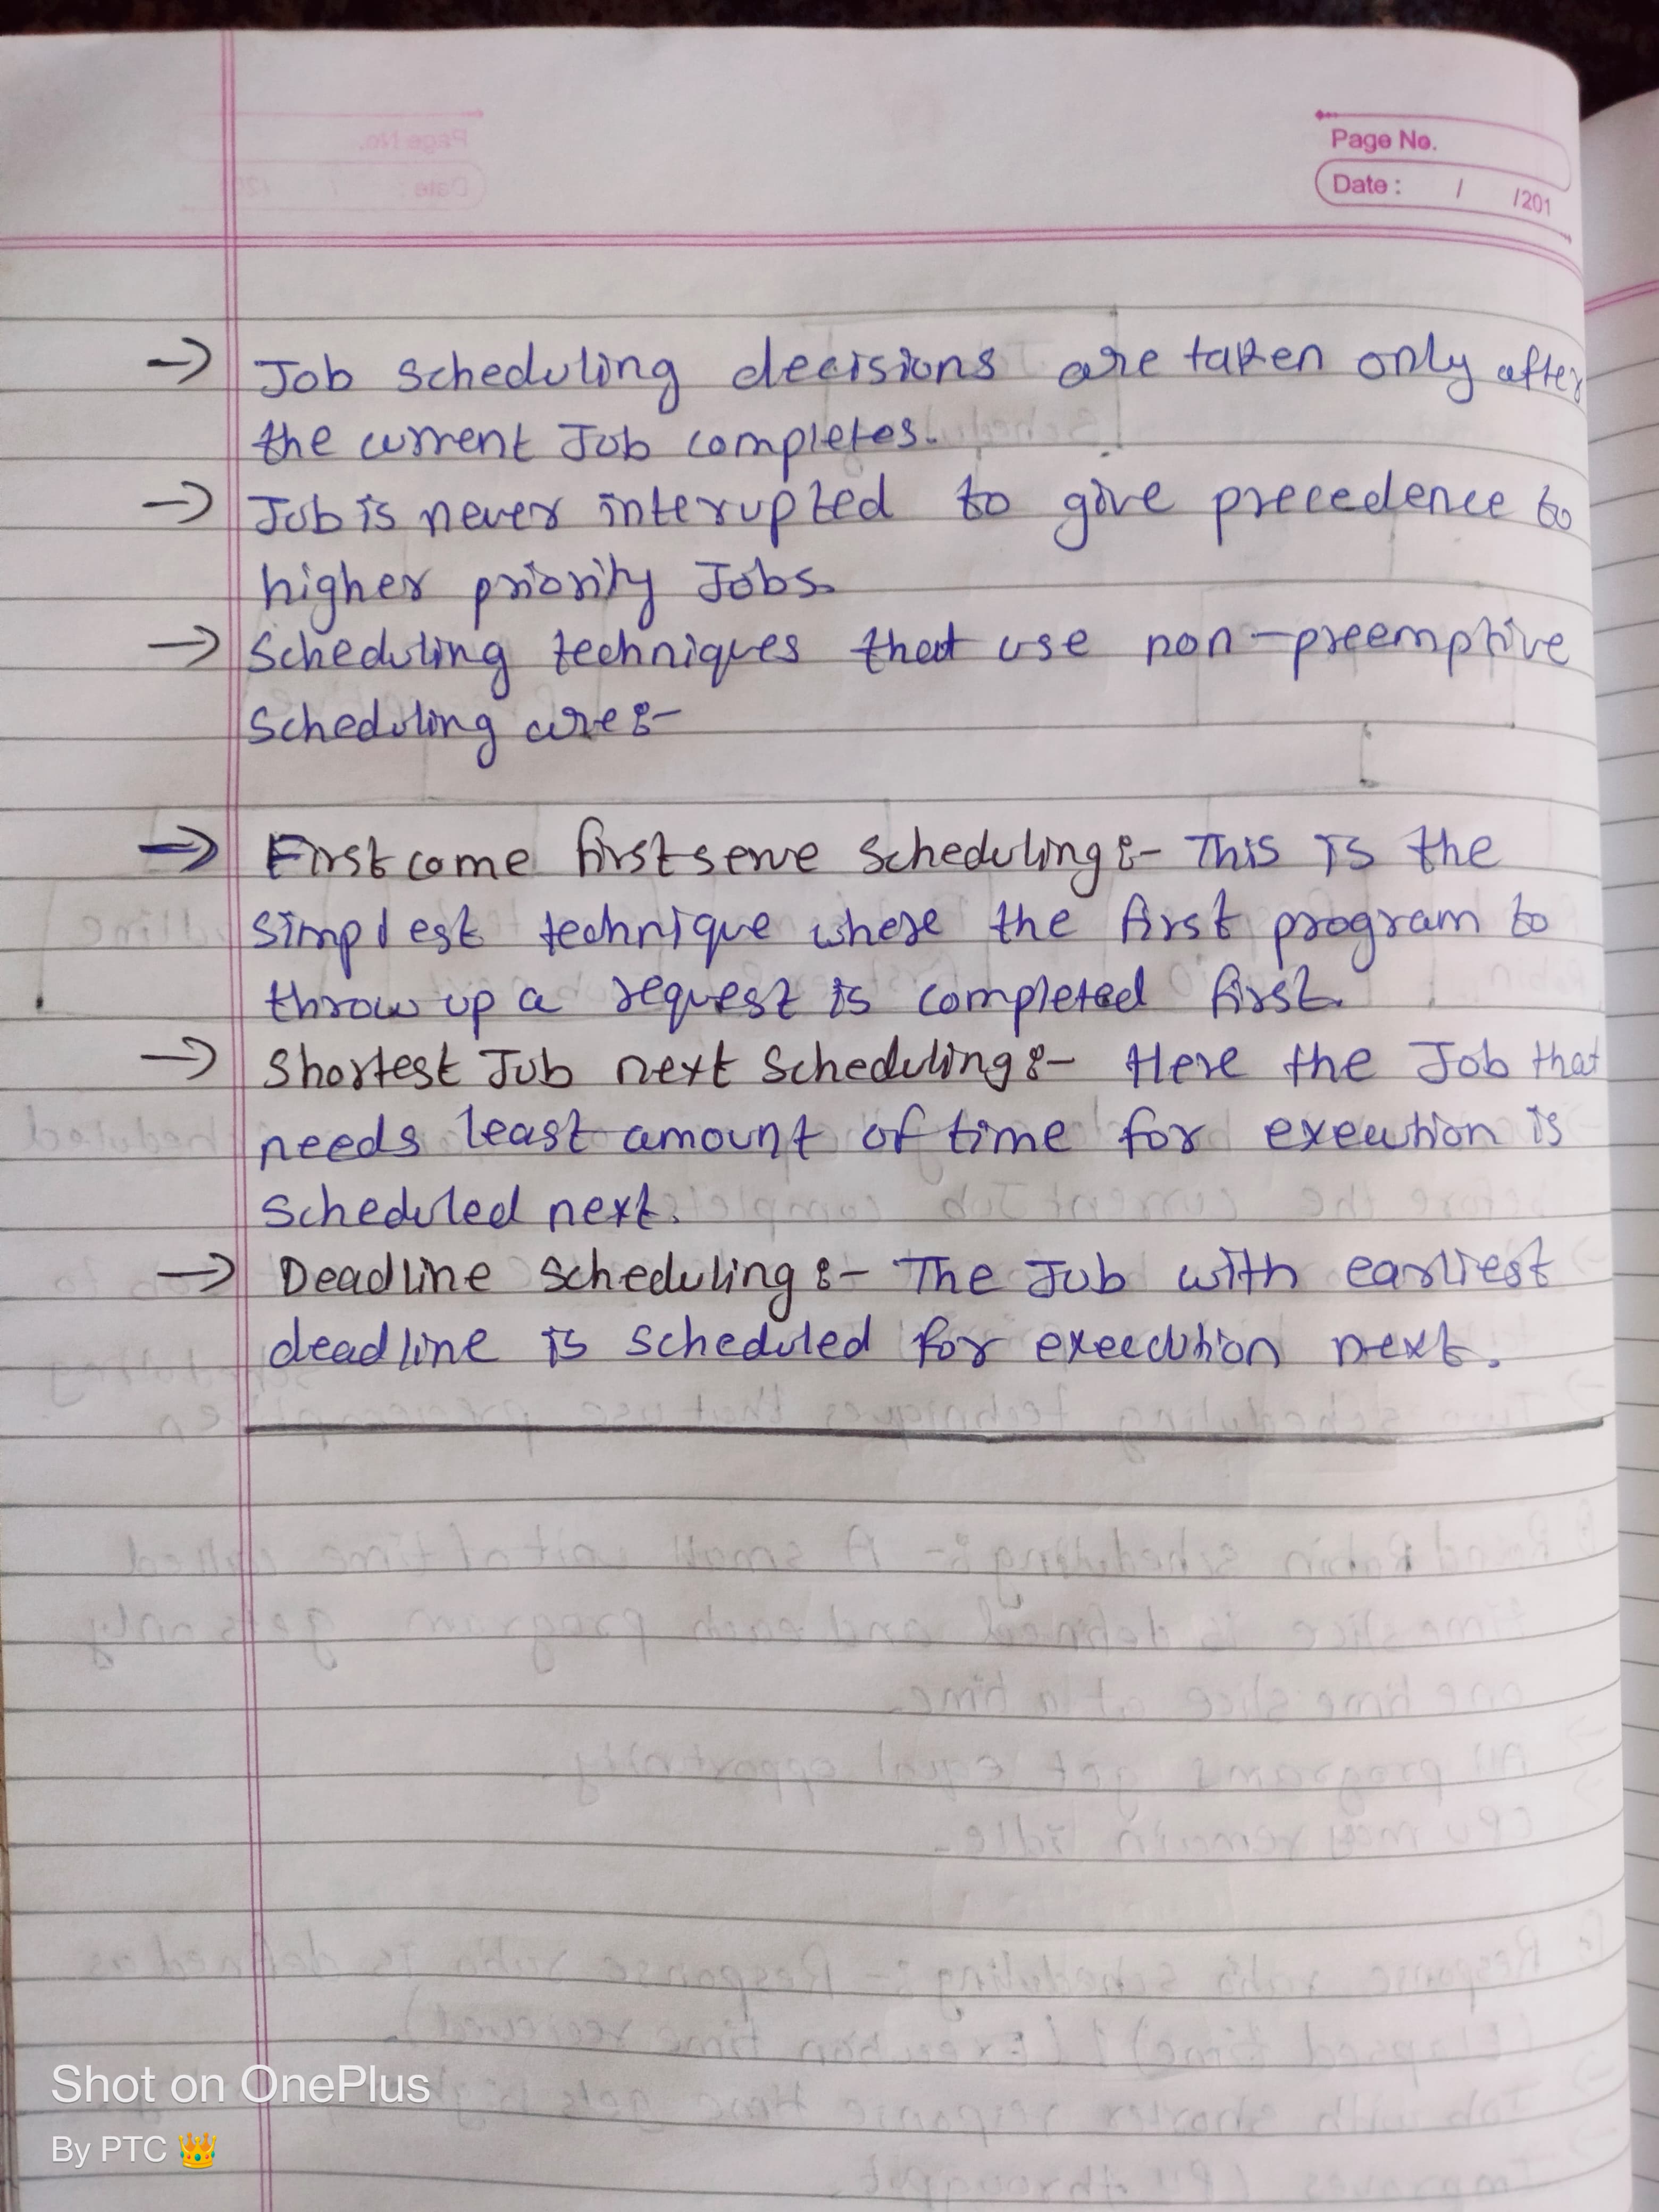 Page No.
Date : / /201
→ Job scheduling decisions are taken only after
the current Job completes.
→ Job is never interupted to give precedence to
higher priority Jobs.
→ Scheduling techniques that use non-preemptive
Scheduling are:-
→ First come first serve scheduling:- This is the
simplest technique where the first program to
throw up a request is completed first.
→ Shortest Job next scheduling:- Here the Job that
needs least amount of time for execution is
scheduled next.
→ Deadline scheduling:- The Job with earliest
deadline is scheduled for execution next.
Shot on OnePlus
By PTC 👑